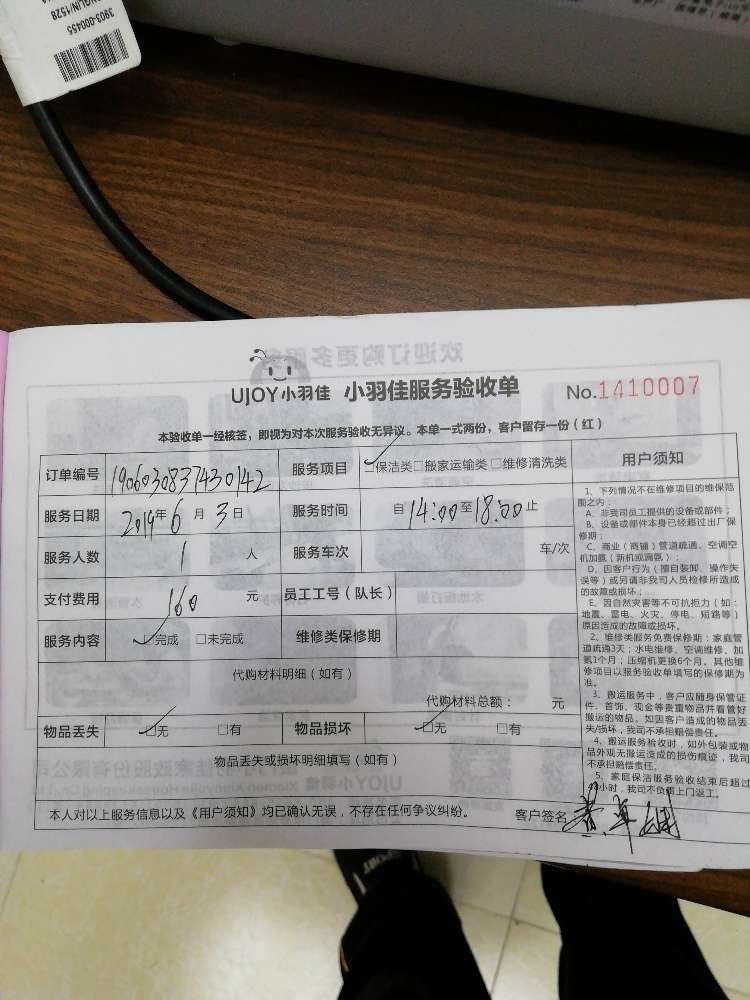 3903-000455
UJOY小羽佳 小羽佳服务验收单 No.1410007
本验收单一经核签，即视为对本次服务验收无异议。本单一式两份，客户留存一份（红）
订单编号 190603083743​0142 服务项目 保洁类 搬家运输类 维修清洗类
服务日期 2019年6月3日 服务时间 自14:00至18:00止
服务人数 1 人 服务车次 车/次
支付费用 160 元 员工工号（队长）
服务内容 完成 未完成 维修类保修期
代购材料明细（如有）
代购材料总额： 元
物品丢失 无 有 物品损坏 无 有
物品丢失或损坏明细填写（如有）
本人对以上服务信息以及《用户须知》均已确认无误，不存在任何争议纠纷。 客户签名
用户须知
1、下列情况不在维修项目的维保范
围之内：
A、非我司员工提供的设备或部件；
B、设备或部件本身已经超过出厂保
修期；
C、商业（商铺）管道疏通、空调空
机加氨（新机或漏氨）；
D、因客户行为（擅自装卸、操作失
误等）或另请非我司人员检修所造成
的故障或损坏；
E、因自然灾害等不可抗拒力（如：
地震、雷电、火灾、停电、短路等）
原因造成的故障或损坏。
2、维修类服务免费保修期：家庭管
道疏通3天；水电维修、空调维修、加
氨1个月；压缩机更换6个月。其他维
修项目以服务验收单填写的保修期为
准。
3、搬运服务中，客户应随身保管证
件、首饰、现金等贵重物品并看管好
搬运的物品。如因客户造成的物品丢
失/损坏，我司不承担赔偿责任。
4、搬运服务验收时，如外包装或物
品外观无搬运造成的损伤痕迹，我司
不承担赔偿责任。
5、家庭保洁服务验收结束后超过
小时，我司不负责上门返工。